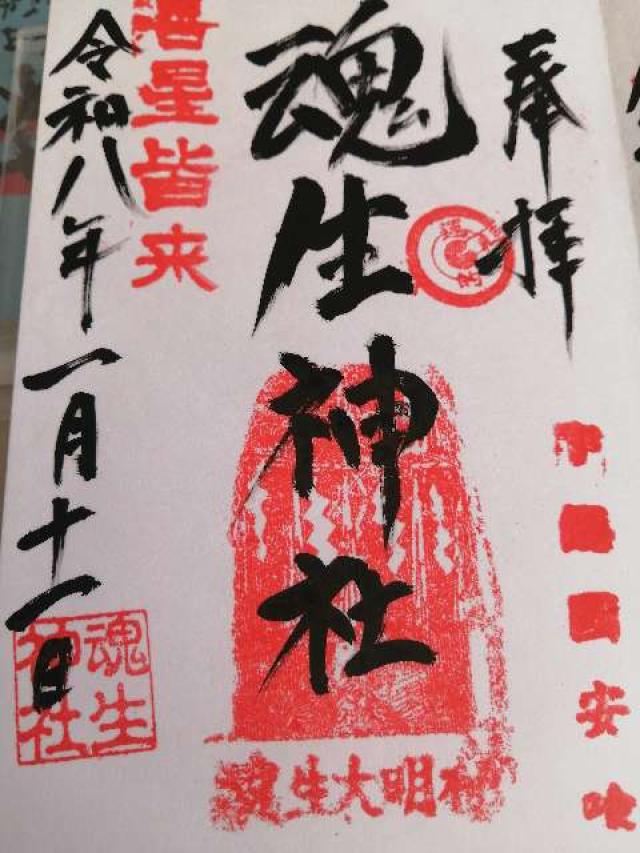 奉拝
安
魂生神社
魂生大明神
星皆来
令和八年一月十一日
魂生
神社